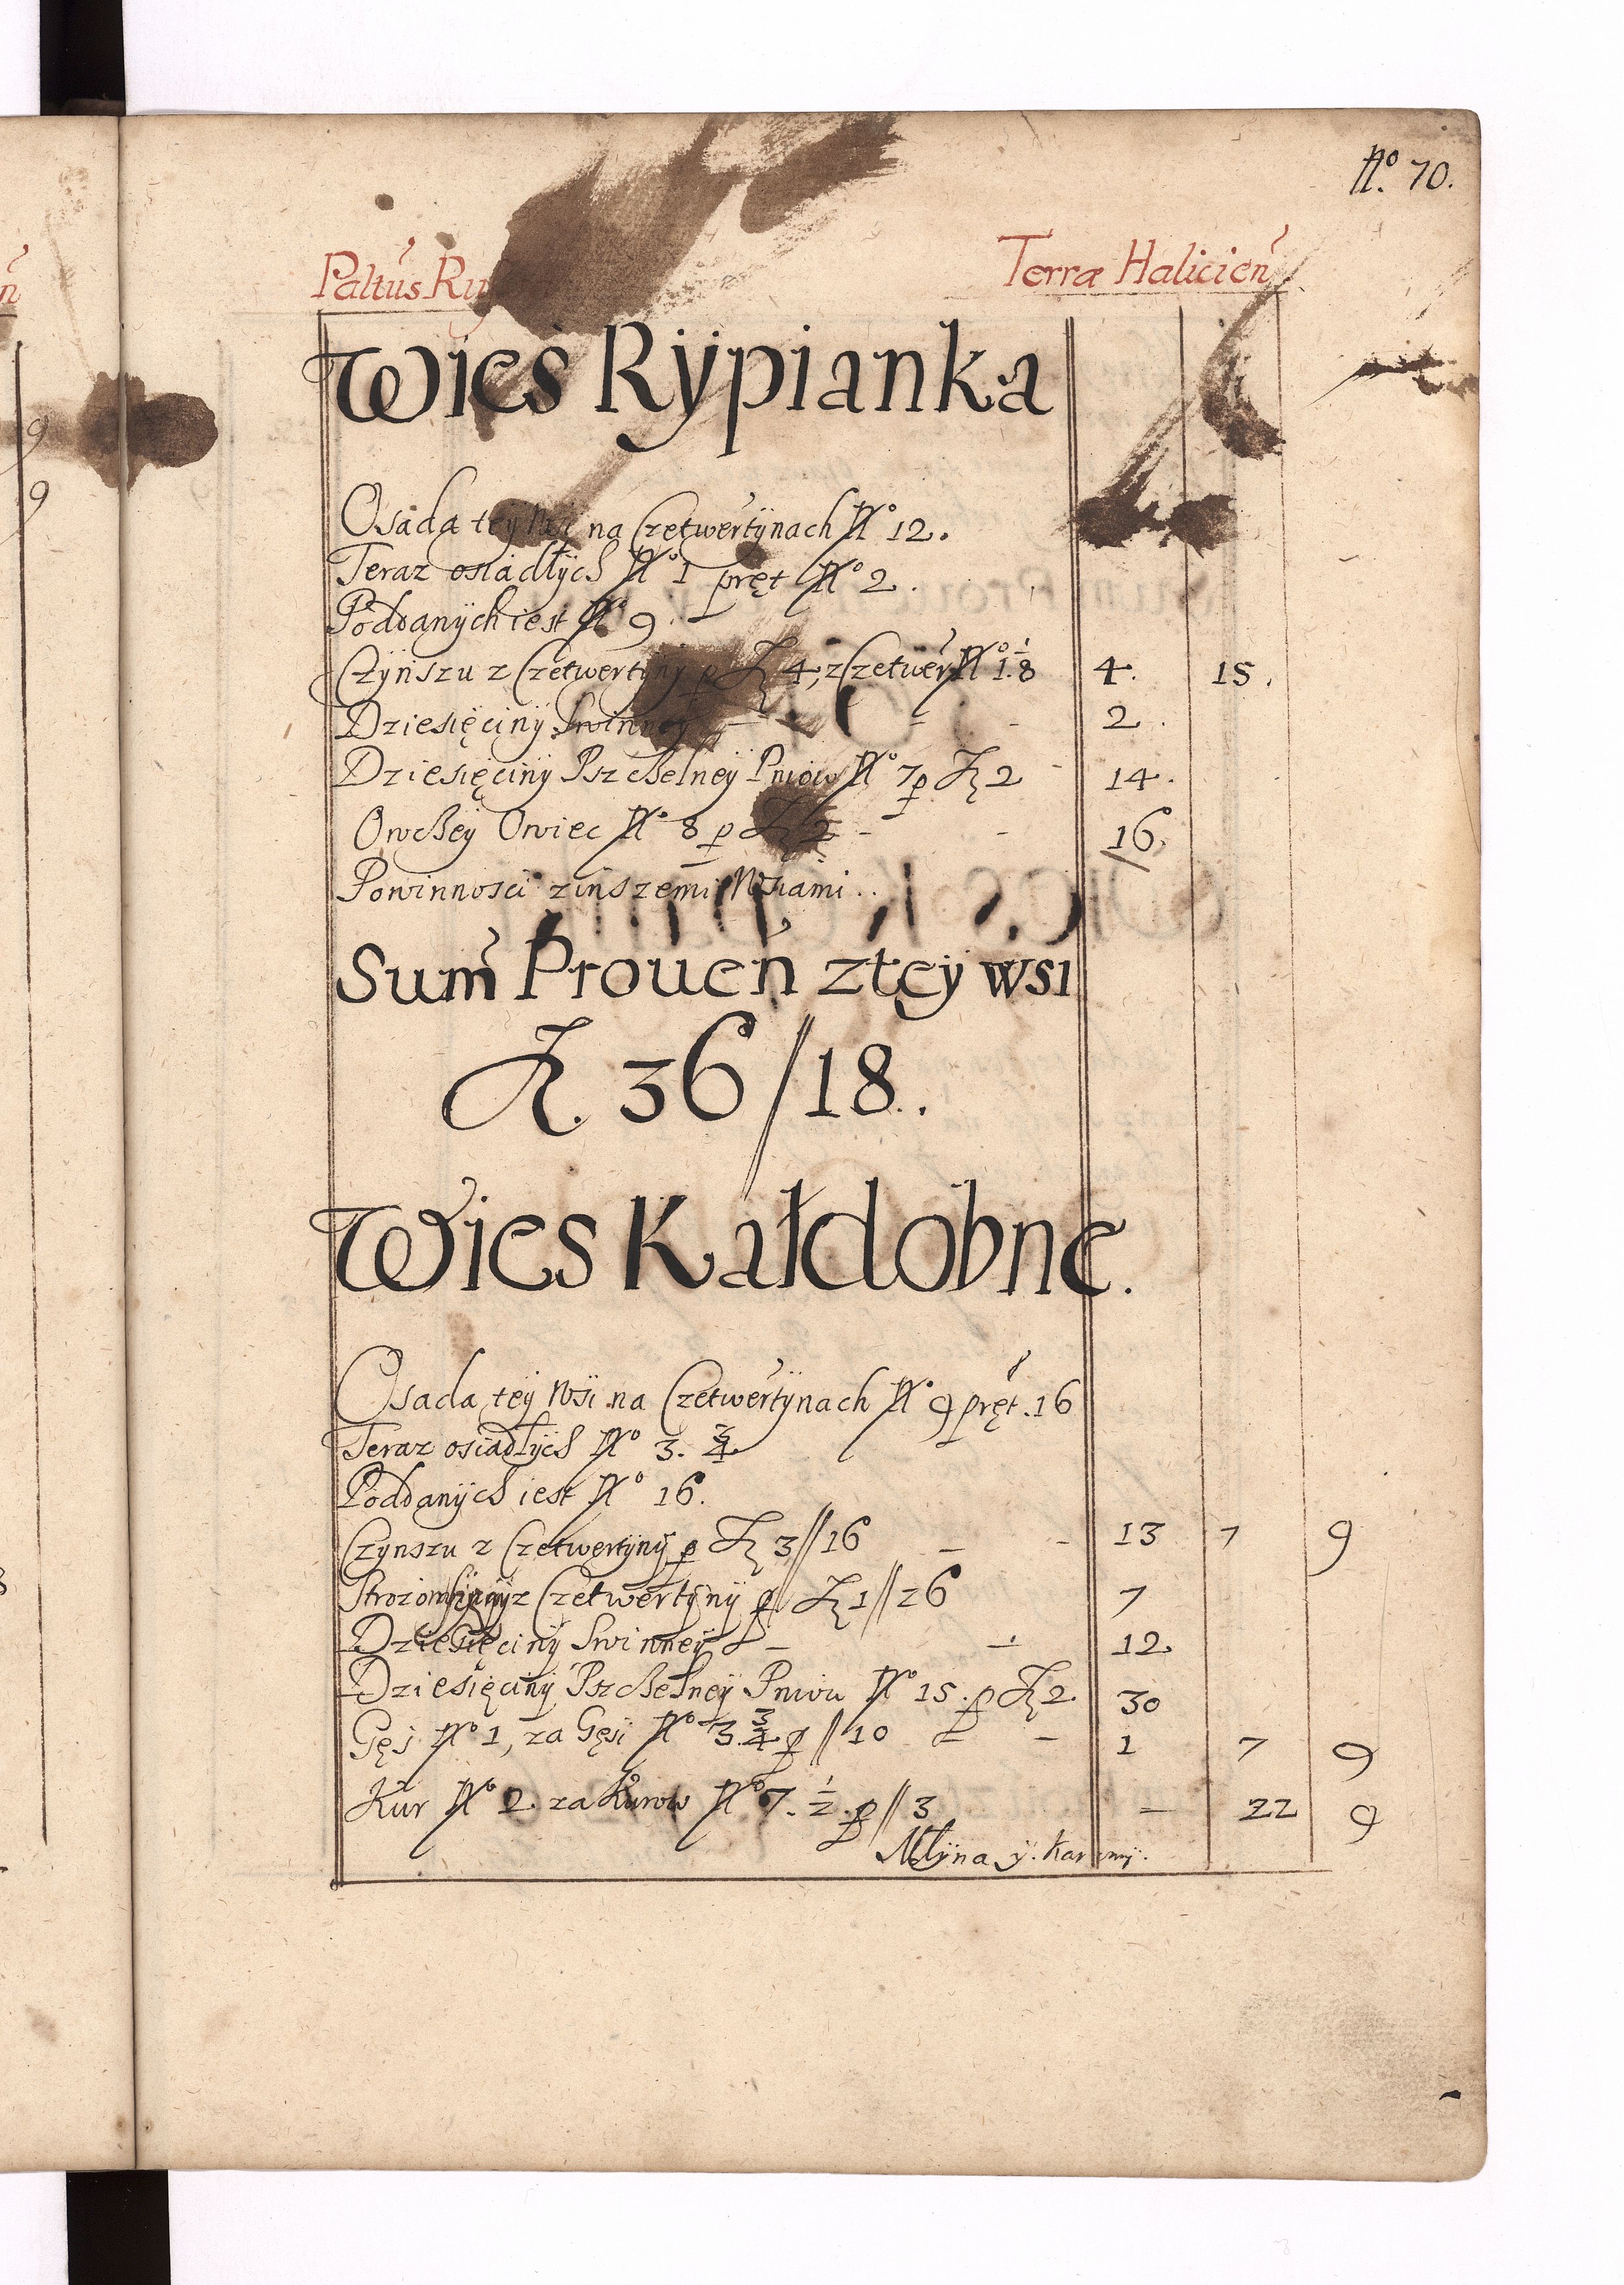 No. 70.
Paltus Ry
Terræ Halicien
Wies Rÿpianka
Osada teÿ Wsi na Czetwertÿnach No 12.
Teraz osiadłÿch No 1 pręt No 2.
Poddanÿch iest No 9.
Czÿnszu z Czetwertÿnÿ p Zł 4, z Czetwer No 1. 1/8 4. 15.
Dziesięcinÿ Swinneÿ - - - 2.
Dziesięcinÿ Pszchelneÿ Pniow No 7 p Zł 2 - 14.
Owcheÿ Owiec No 8 p Zł 2 - - 16.
Powinnosci zinszemi Wsiami..
Sum Prouen z teÿ wsi
Zł. 36 // 18..
Wies Kałdobne.
Osada teÿ Wsi na Czetwertÿnach No 9 pręt. 16
Teraz osiadłÿch No 3. 3/4
Poddanÿch iest No 16.
Czynszu z Czetwertÿnÿ p Zł 3 // 16 - - 13 7 9
z Czetwertÿnÿ p Zł 1 // 26 7
Dziesięcinÿ Swinneÿ - - 12.
Dziesięcinÿ Pszchelneÿ Pniow No 15. p Zł 2. 30
Gęsi No 1, za Gęsi No 3. 3/4 p // 10 - - 1 7 9
Kur No 2. za Kurow No 7. 1/2. p // 3 - 22 9
Młÿna ÿ. Karcmÿ.
9
9